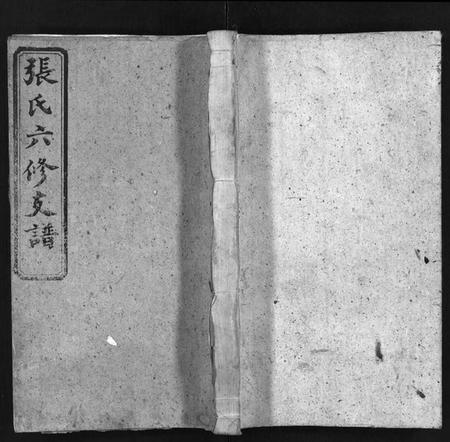 張氏六修支譜